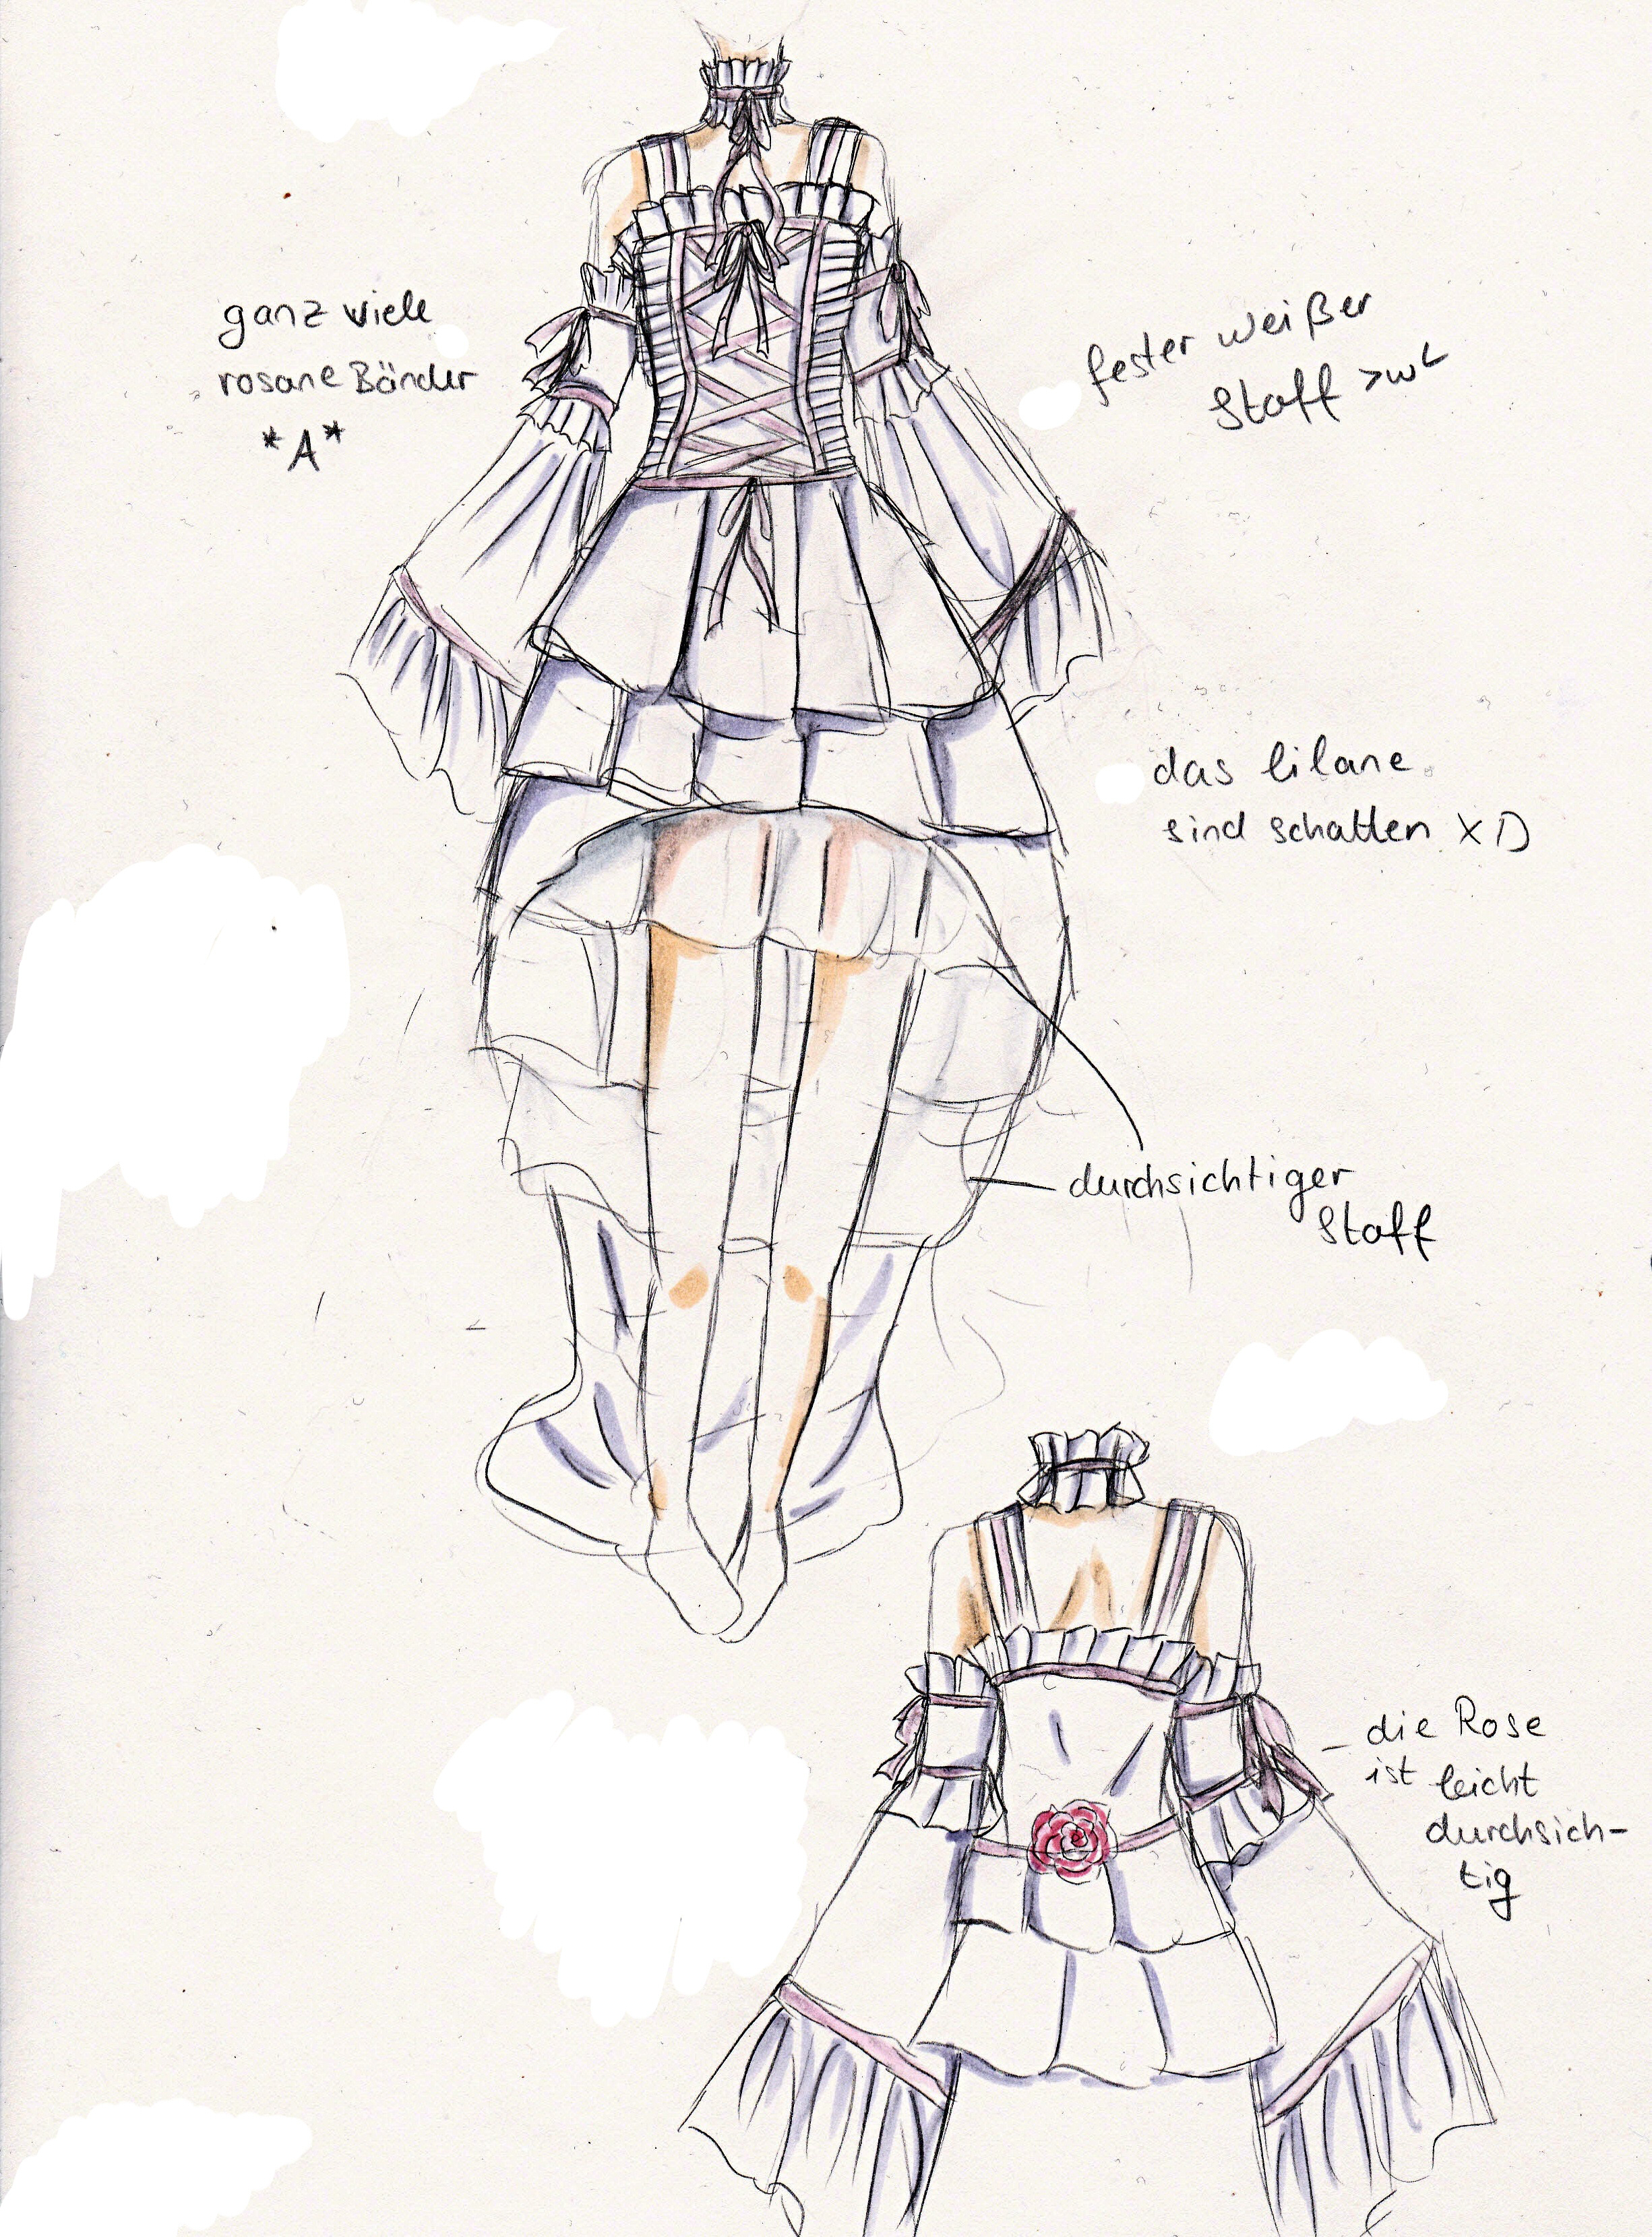 ganz viele
rosane Bänder
*A*
fester weißer
Stoff >w<
das lilane
sind schatten XD
durchsichtiger
Stoff
die Rose
ist leicht
durchsich-
tig